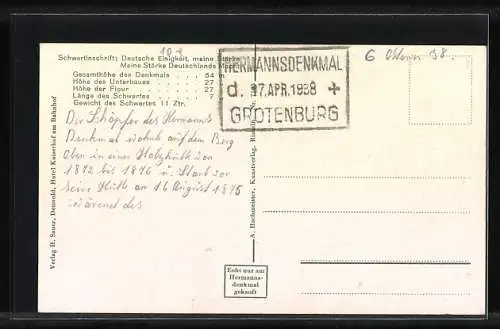 183
6 Ostern 38.
Schwertinschrift: Deutsche Einigkeit, meine Stärke
Meine Stärke Deutschlands Macht
Gesamthöhe des Denkmals . . 54 m
Höhe des Unterbaues . . . 27 "
Höhe der Figur . . . . 27 "
Länge des Schwertes . . . 7 "
Gewicht des Schwertes 11 Ztr.
HERMANNSDENKMAL
d. 17.APR.1938 +
GROTENBURG
Der Schöpfer des Hermanns
Denkmal wohnte auf dem Berg
Oben in einer Holzhütte von
bis 1846 u. Starb vor
seine Hütte am 16 August
wärend des
Verlag H. Sauer, Detmold, Hotel Kaiserhof am Bahnhof
A. Hochrelner, Kunstverlag,
Echt nur am
Hermanns-
denkmal
gekauft